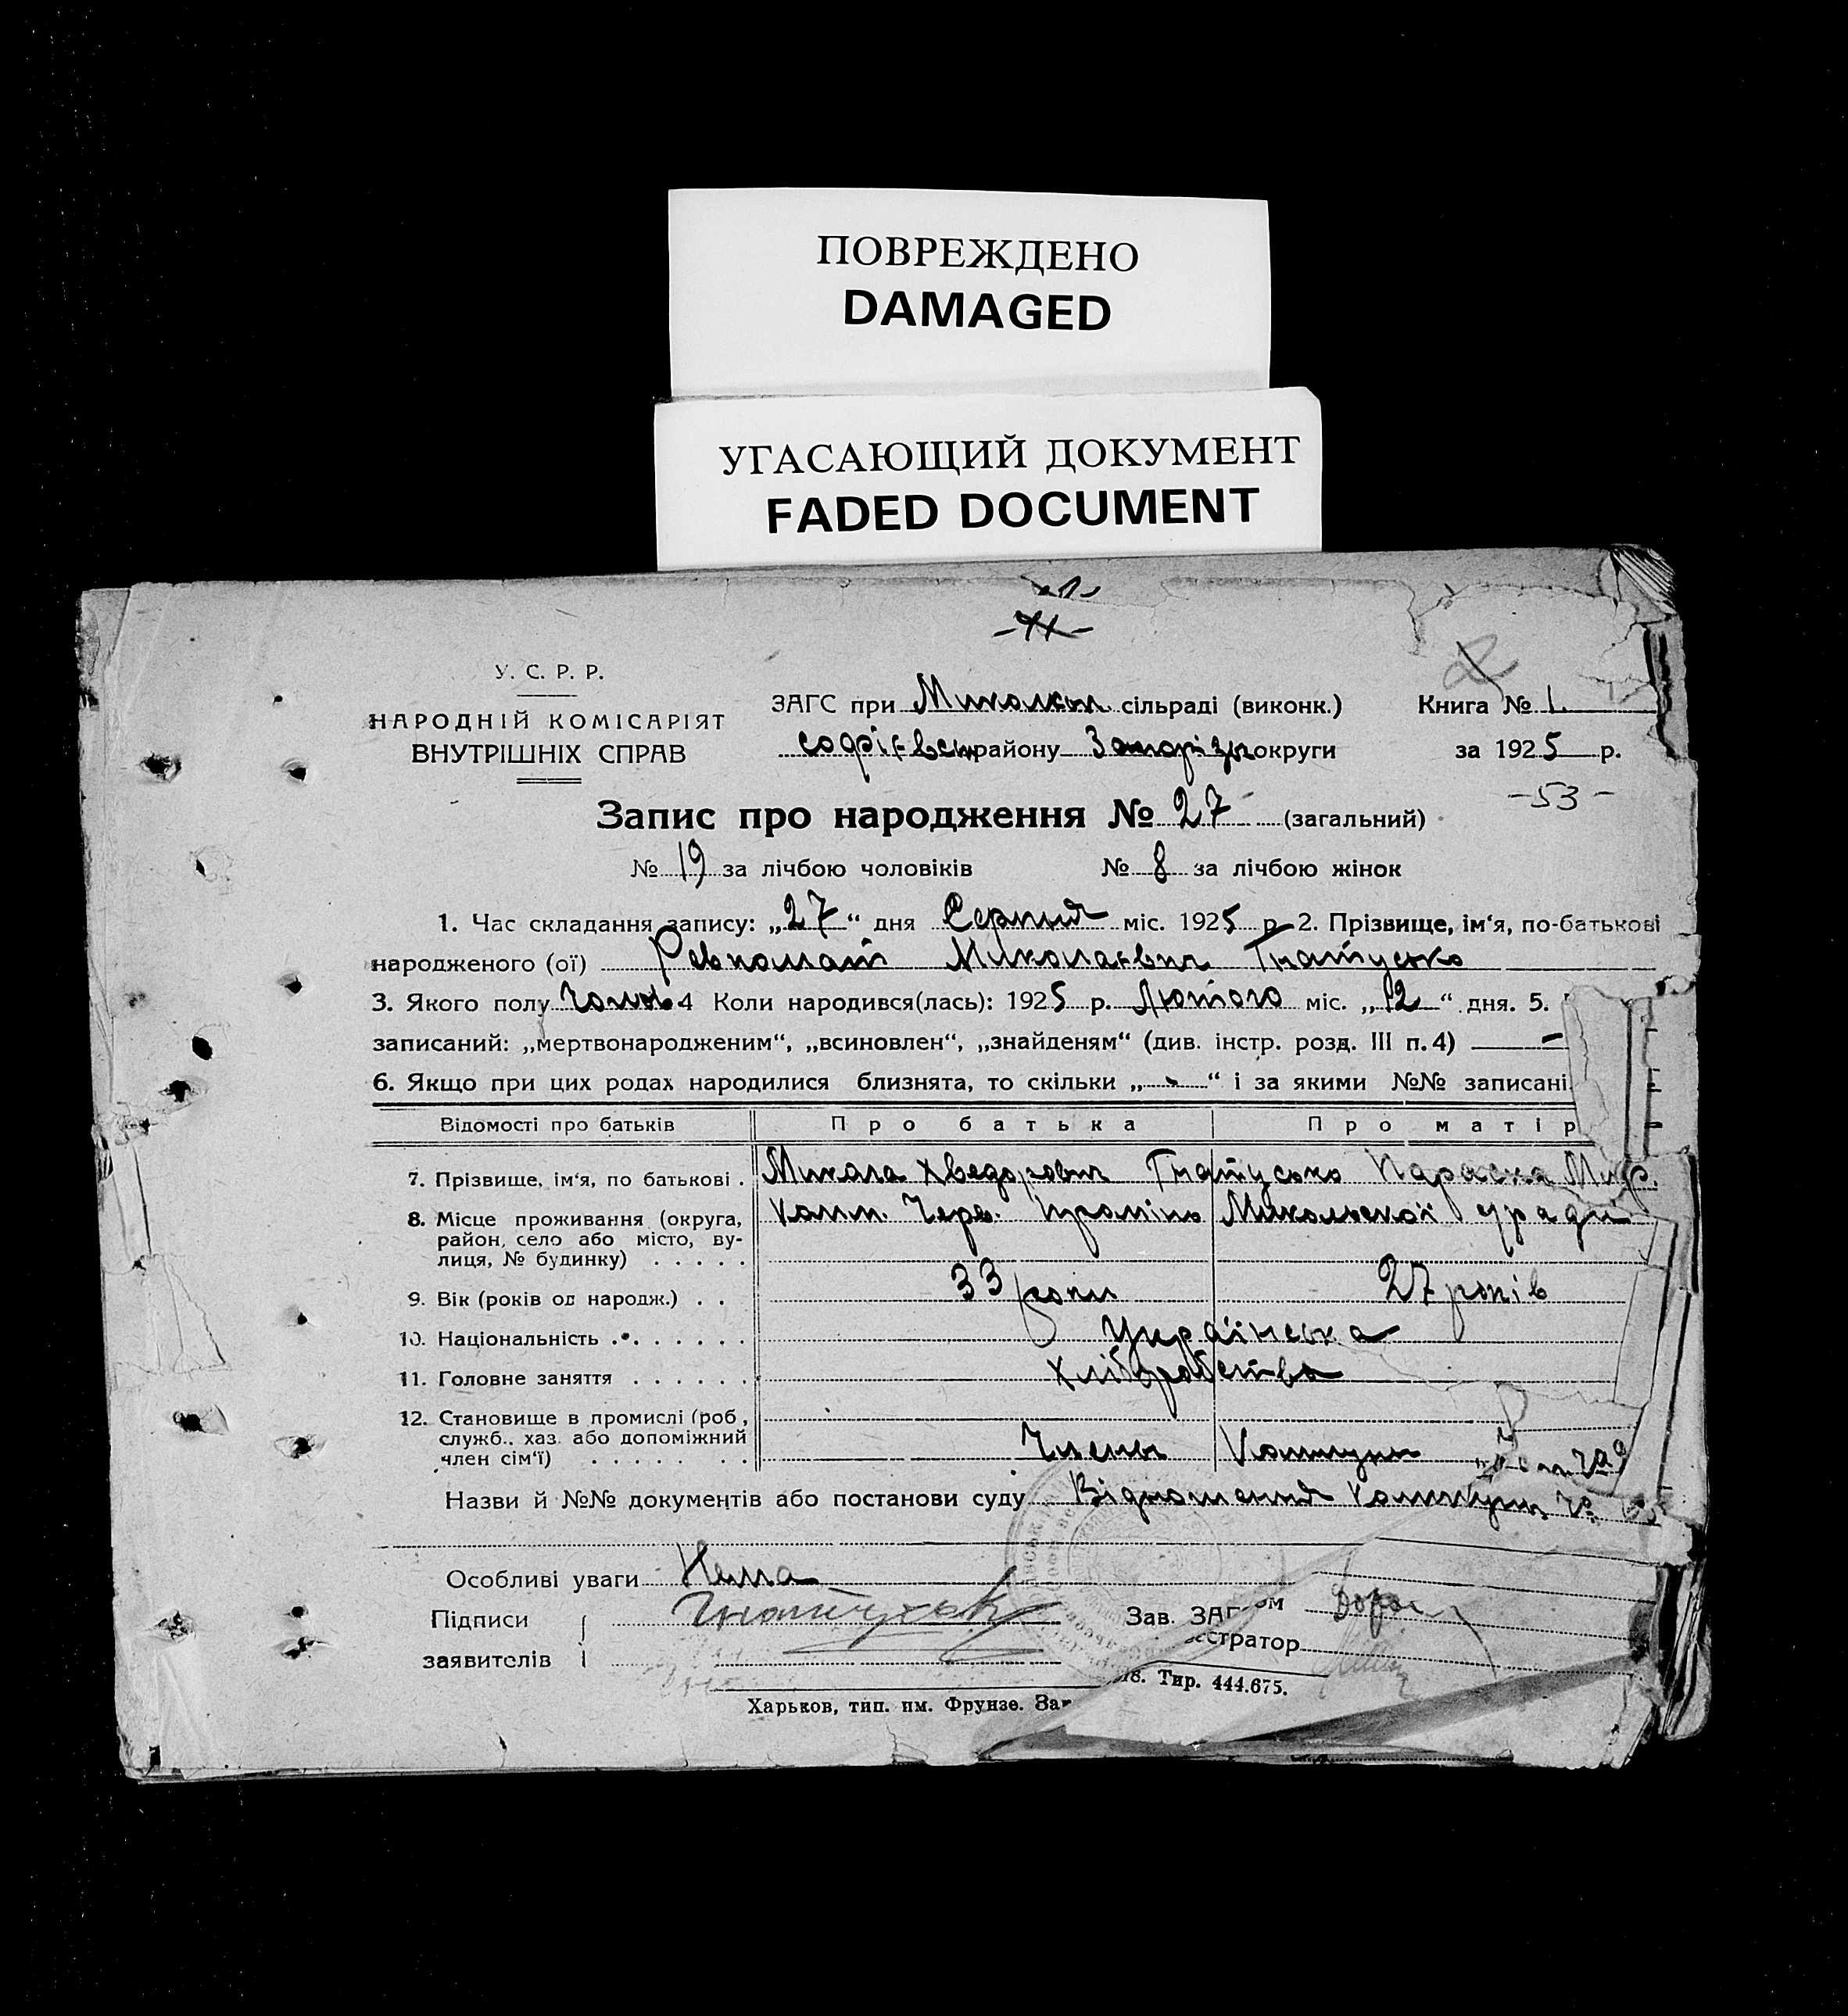 ПОВРЕЖДЕНО
DAMAGED
УГАСАЮЩИЙ ДОКУМЕНТ
FADED DOCUMENT
У. С. Р. Р.
НАРОДНІЙ КОМІСАРІЯТ
ВНУТРІШНІХ СПРАВ
ЗАГС при Миколськ сільраді (виконк.) Книга № 1.
софієвськ району Запорізьк округи за 1925 р.
-53-
Запис про народження № 27 (загальний)
№ 19 за лічбою чоловіків № 8 за лічбою жінок
1. Час складання запису: „27“ дня Серпня міс. 1925 р. 2. Прізвище, ім‘я, по-батькові
народженого (ої) Ревколай Миколаєвич Гнатусько
3. Якого полу Чолов. 4 Коли народився(лась): 1925 р. Лютого міс. „12“ дня. 5.
записаний: „мертвонародженим“, „всиновлен“, „знайденям“ (див. інстр. розд. III п. 4) —
6. Якщо при цих родах народилися близнята, то скільки „-“ і за якими №№ записані
Відомості про батьків Про батька Про матір
7. Прізвище, ім‘я, по батькові . Микола Хведорович Гнатусько Параска Мир.
8. Місце проживання (округа, Комм. Черв. Промінь Микольської
район, село або місто, ву-
лиця, № будинку) . . . . .
9. Вік (років од народж.) . . 33 роки 27 років
10. Національність . . . . . . . Українська
11. Головне заняття . . . . . . Хліборобство
12. Становище в промислі (роб.,
служб., хаз. або допоміжний
член сім‘ї) . . . . . . . Члены Коммуни
Назви й №№ документів або постанови суду Відношення Коммуни
Особливі уваги Нема
Підписи Гнатусько Зав. ЗАГ ом
заявителів стратор
Харьков, тип. им. Фрунзе. За 18. Тир. 444.675.